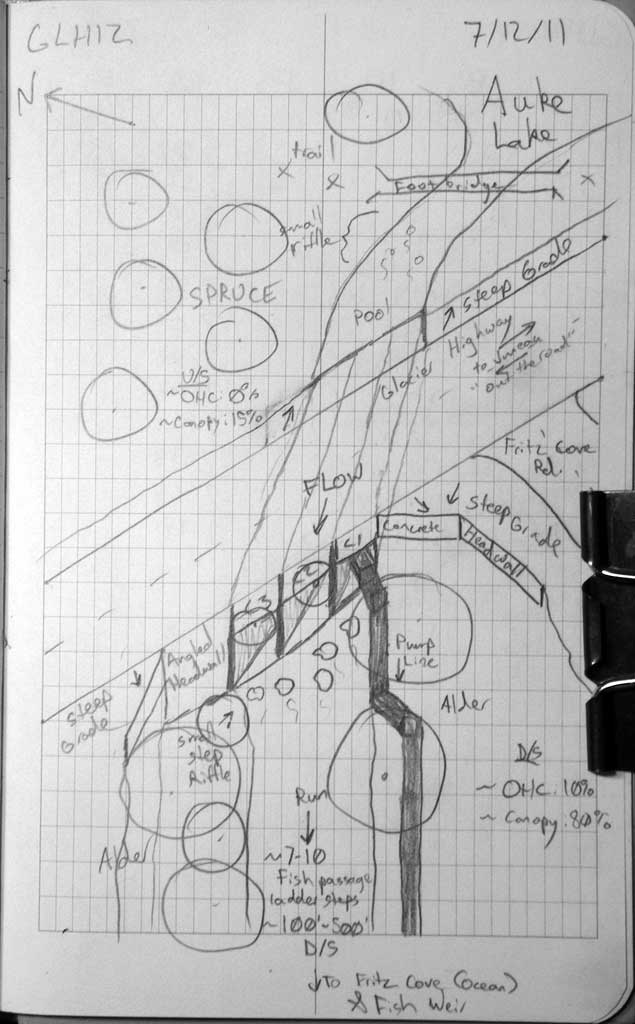 GLH12
7/12/11
N
Auke
Lake
trail
Foot bridge
small
riffle
SPRUCE
POOL
Steep Grade
Highway
to Juneau
"out the road"
Glacier
U/S
~OHC: 0%
~Canopy: 15%
Fritz Cove
Rd.
FLOW
Steep Grade
Concrete
Headwall
C1
C2
C3
Angled
Headwall
Steep
Grade
Pump
Line
Alder
small
step
Riffle
D/S
~ OHC: 10%
~ Canopy: 80%
Run
Alder
~7-10
Fish passage
ladder steps
~100'-500'
D/S
To Fritz Cove (ocean)
& Fish Weir